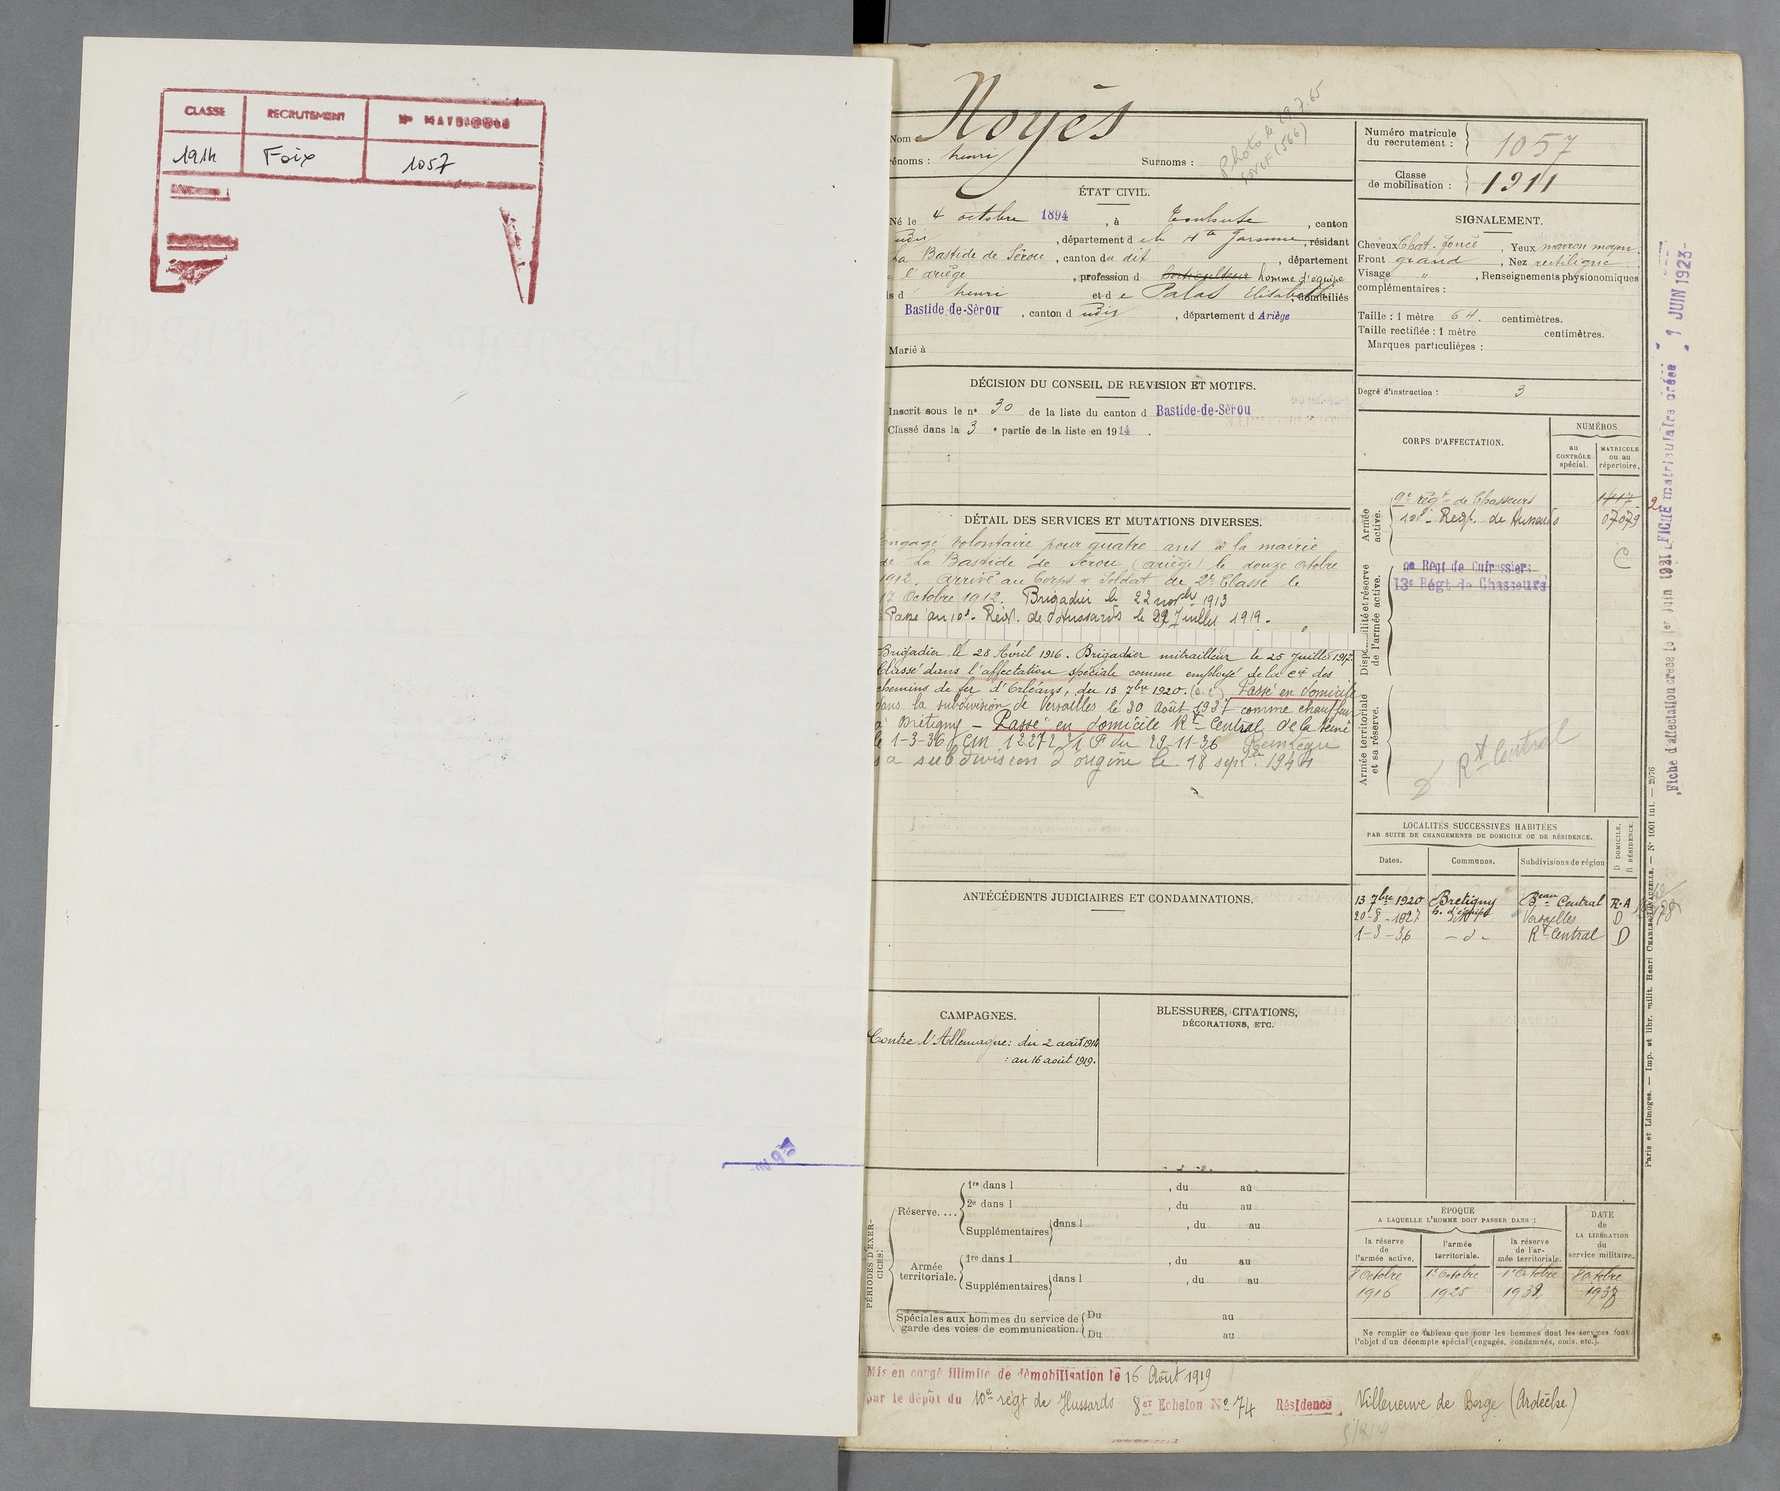 CLASSE RECRUTEMENT N° MATRICULE
1914 Foix 1057
Nom Noyès
rénoms : henri Surnoms :
Photo le 19.7.65
ÉTAT CIVIL.
Né le 4 octobre 1894, à Toulouse, canton
udit, département d e la Hte Garonne, résidant
La Bastide de Sérou, canton du dit, département
l'ariège, profession d homme d'équipe
ls d henri et d e Palas Elisabeth, domiciliés
Bastide-de-Sérou, canton d udit, département d Ariège
Marié à
DÉCISION DU CONSEIL DE REVISION ET MOTIFS.
Inscrit sous le n° 30 de la liste du canton d Bastide-de-Sérou
Classé dans la 3 e partie de la liste en 1914.
DÉTAIL DES SERVICES ET MUTATIONS DIVERSES.
Engagé volontaire pour quatre ans à la mairie
de La Bastide de Sérou (ariège) le douze octobre
1912. arrivé au Corps & Soldat de 2e Classe le
17 Octobre 1912. Brigadier le 22 novbre 1913
Passé au 10e Regt. de Hussards le 22 Juillet 1919.
Brigadier le 28 Avril 1916. Brigadier mitrailleur le 25 Juillet 1917
Classé dans l'affectation spéciale comme employé de la Cie des
chemins de fer d'Orléans, du 13 7bre 1920. Passé en domicile
dans la subdivision de Versailles le 20 Août 1927 comme chauffeur
à Bretigny - Passé en domicile Rt Central de la Seine
le 1-3-36 du 29-11-36 Réintégré
sa subdivision d'origine le 18 septbre 1944
ANTÉCÉDENTS JUDICIAIRES ET CONDAMNATIONS.
CAMPAGNES.
Contre l'Allemagne: du 2 août 1914
: au 16 août 1919.
BLESSURES, CITATIONS,
DÉCORATIONS, ETC.
PÉRIODES D'EXER-
CICES.
Réserve....
1re dans l , du au
2e dans l , du au
Supplémentaires dans l , du au
Armée
territoriale.
1re dans l , du au
Supplémentaires dans l , du au
Spéciales aux hommes du service de
garde des voies de communication.
Du au
Du au
Mis en congé illimité de démobilisation le 16 Août 1919
par le dépôt du 10e regt de Hussards 8er Echelon No 74 Résidence Villeneuve de Berge (Ardèche)
Numéro matricule
du recrutement : 1057
Classe
de mobilisation : 1911
SIGNALEMENT.
Cheveux Chat. foncé, Yeux marron moyen
Front grand, Nez rectiligne
Visage ", Renseignements physionomiques
complémentaires :
Taille : 1 mètre 64 centimètres.
Taille rectifiée : 1 mètre centimètres.
Marques particulières :
Degré d'instruction : 3
CORPS D'AFFECTATION.
NUMÉROS
au
CONTRÔLE
spécial.
MATRICULE
ou au
répertoire.
Armée
active.
9e régt de Chasseurs 1417
10e Regt. de Hussards 07079
C
Disponibilité et réserve
de l'armée active.
9e Régt de Cuirassiers
13e Régt de Chasseurs
Armée territoriale
et sa réserve.
Rt Central
LOCALITÉS SUCCESSIVES HABITÉES
PAR SUITE DE CHANGEMENTS DE DOMICILE OU DE RÉSIDENCE.
Dates. Communes. Subdivisions de région
D DOMICILE.
R RÉSIDENCE.
13 7bre 1920 Bretigny Beau Central R.A
h. d'équipe
20-8-1927 Versailles D
1-3-36 - d - Rt Central D
ÉPOQUE
A LAQUELLE L'HOMME DOIT PASSER DANS :
la réserve
de
l'armée active.
l'armée
territoriale.
la réserve
de l'ar-
mée territoriale.
DATE
de
LA LIBÉRATION
du
service militaire.
8 Octobre 1er Octobre 1er Octobre 8 Octobre
1916 1925 1932 1938
Ne remplir ce tableau que pour les hommes dont les services font
l'objet d'un décompte spécial (engagés, condamnés, omis, etc.).
Fiche d'affectation créée le 1er Juin 1931
FICHE matriculaire créée - 1 JUIN 1923 -
Paris et Limoges. — Imp. et libr. milit. Henri CHARLES-LAVAUZELLE. — N° 1001 int. — 2076